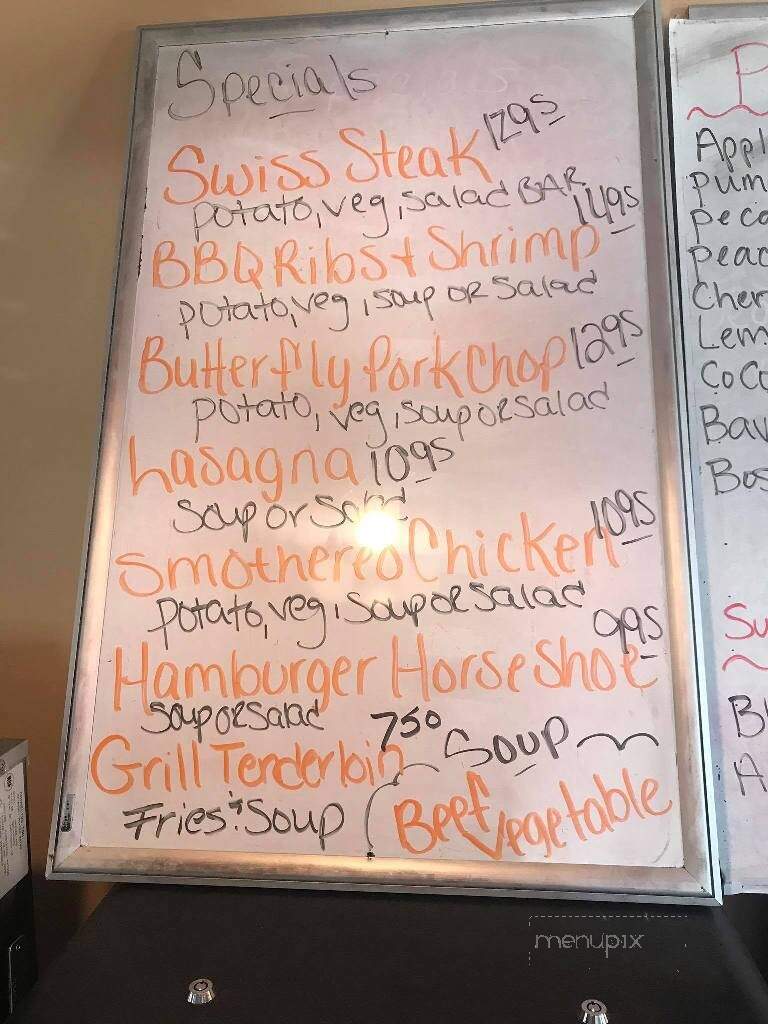 Specials
Swiss Steak 1295
potato, veg, salad BAR
BBQ Ribs + Shrimp 1495
potato, veg, soup OR Salad
Butterfly Pork Chop 1295
potato, veg, soup OR salad
Lasagna 1095
Soup or Salad
Smothered Chicken 1095
potato, veg, Soup OR Salad
Hamburger Horse Shoe 995
Soup OR Salad
Grill Tenderloin 750
Fries + Soup
Soup
Beef Vegetable
P
Appl
pum
peca
peac
Cher
Lem
CoCo
Bav
Bos
Su
B
A
menupix